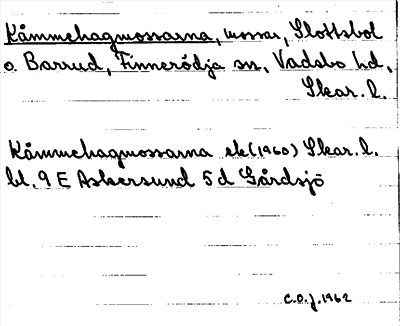 Kåmmehagmossarna, mossar, Slottsbol
o. Barrud, Finnerödja sn, Vadsbo hd,
Skar. l.
Kåmmehagmossarna ek (1960) Skar. l.
bl. 9 E Askersund 5 d Gårdsjö
C.O.J. 1962